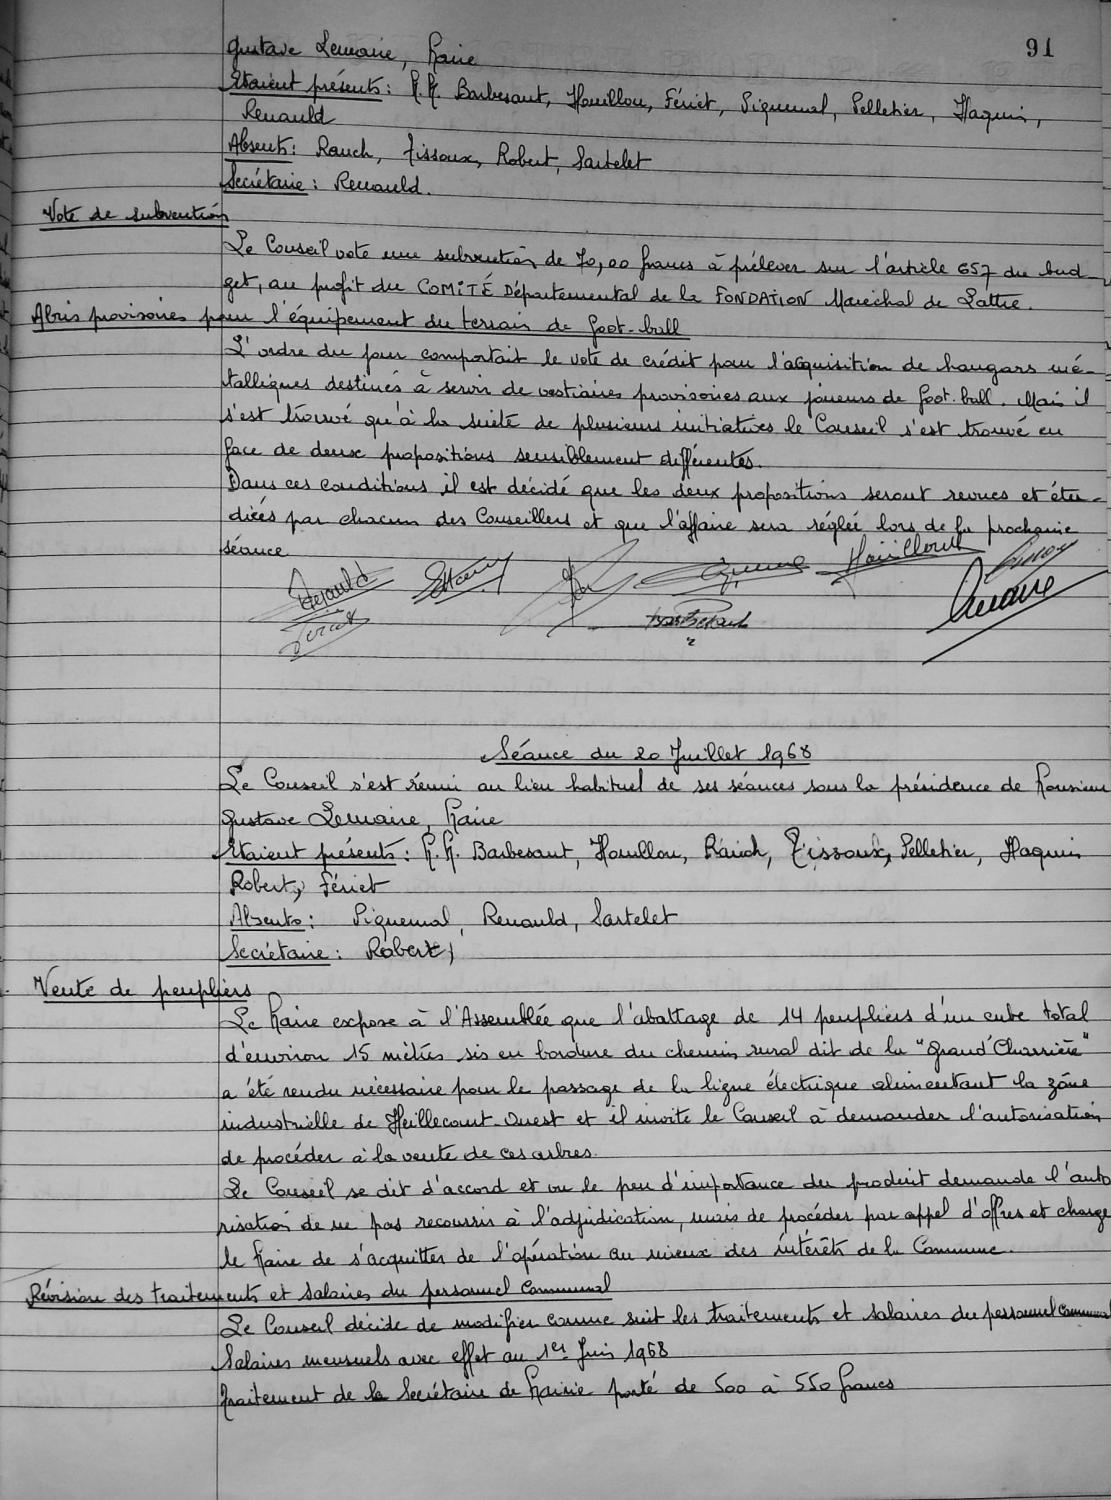 91
Gustave Lemaire, Maire
Etaient présents : M.M. Barbesant, Houillon, Fériet, Piquemal, Pelletier, Haquin,
Renauld
Absents : Rauch, Tissoux, Robert, Sartelet
Secrétaire : Renauld.
Vote de subvention
Le Conseil vote une subvention de 70,00 francs à prélever sur l'article 657 du bud-
get, au profit du COMITÉ Départemental de la FONDATION Maréchal de Lattre.
Abris provisoires pour l'équipement du terrain de foot-ball
L'ordre du jour comportait le vote de crédit pour l'acquisition de hangars mé-
talliques destinés à servir de vestiaires provisoires aux joueurs de foot-ball. Mais il
s'est trouvé qu'à la suite de plusieurs initiatives le Conseil s'est trouvé en
face de deux propositions sensiblement différentes.
Dans ces conditions, il est décidé que les deux propositions seront revues et étu-
diées par chacun des Conseillers et que l'affaire sera réglée lors de la prochaine
séance
Renauld Houillon
Fériet Barbesant Lemaire
Séance du 20 Juillet 1968
Le Conseil s'est réuni au lieu habituel de ses séances sous la présidence de Monsieur
Gustave Lemaire, Maire
Etaient présents : M.M. Barbesant, Houillon, Rauch, Tissoux, Pelletier, Haquin
Robert, Fériet
Absents : Piquemal, Renauld, Sartelet
Secrétaire : Robert,
Vente de peupliers
Le Maire expose à l'Assemblée que l'abattage de 14 peupliers d'un cube total
d'environ 15 mètres sis en bordure du chemin rural dit de la "Grand'Charrière"
a été rendu nécessaire pour le passage de la ligne électrique alimentant la zône
industrielle de Heillecourt-Ouest et il invite le Conseil à demander l'autorisation
de procéder à la vente de ces arbres.
Le Conseil se dit d'accord et vu le peu d'importance du produit demande l'auto
risation de ne pas recourir à l'adjudication, mais de procéder par appel d'offres et charge
le Maire de s'acquitter de l'opération au mieux des intérêts de la Commune.
Révision des traitements et salaires du personnel communal
Le Conseil décide de modifier comme suit les traitements et salaires du personnel communal
Salaires mensuels avec effet au 1er Juin 1968
Traitement de la Secrétaire de Mairie porté de 500 à 550 francs